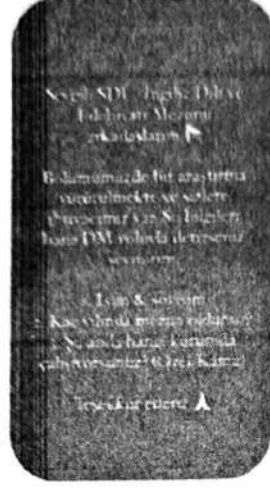 Sevgili SDÜ - İngiliz Dili ve
Edebiyatı Mezunu
arkadaşlarım
Bölümümüzde bir araştırma
yürütülmekte ve sizlere
ihtiyacımız var. Şu bilgileri
bana DM yoluyla iletirseniz
sevinirim
İsim & soyisim
Kaç yılında mezun oldunuz?
Şu anda hangi kurumda
çalışıyorsunuz? (Özel, Kamu)
Teşekkür ederiz